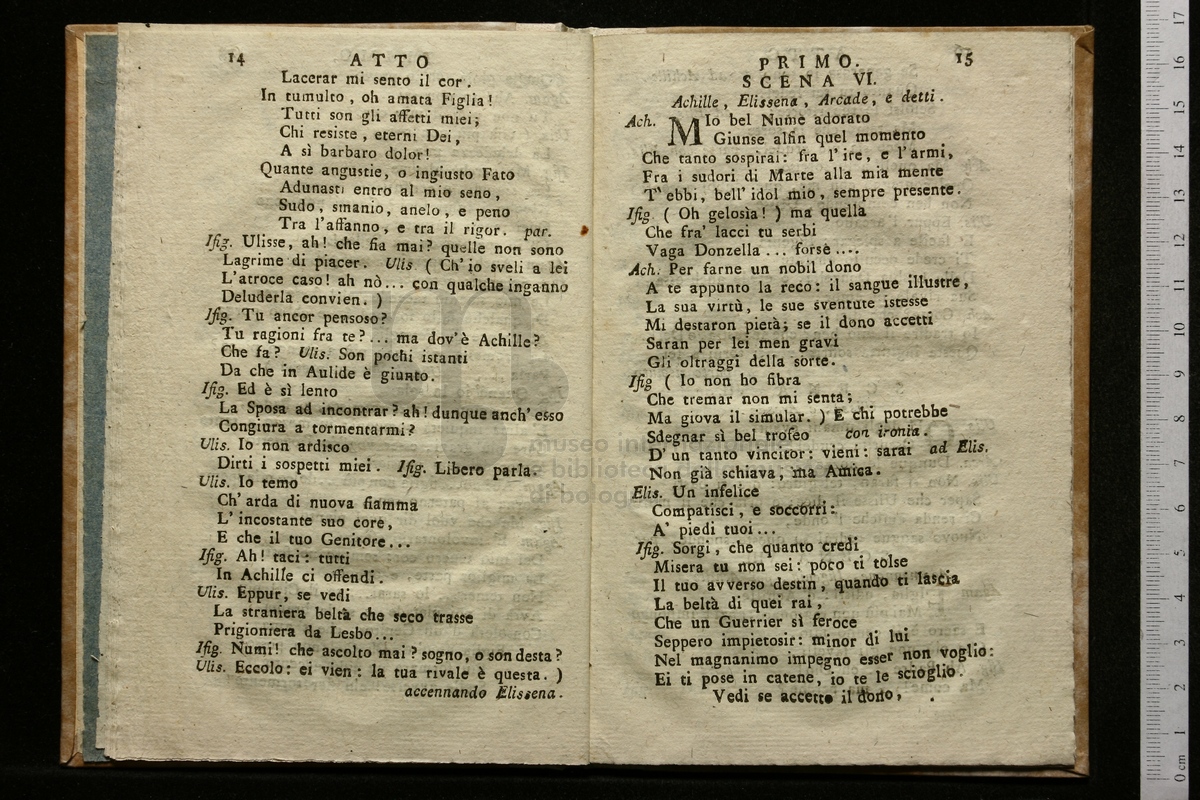 14
ATTO
Lacerar mi sento il cor.
In tumulto, oh amata Figlia!
Tutti son gli affetti miei;
Chi resiste, eterni Dei,
A sì barbaro dolor!
Quante angustie, o ingiusto Fato
Adunasti entro al mio seno,
Sudo, smanio, anelo, e peno
Tra l'affanno, e tra il rigor. par.
Ifig. Ulisse, ah! che fia mai? quelle non sono
Lagrime di piacer. Ulis. ( Ch'io sveli a lei
L'atroce caso! ah nò... con qualche inganno
Deluderla convien. )
Ifig. Tu ancor pensoso?
Tu ragioni fra te?... ma dov'è Achille?
Che fa? Ulis. Son pochi istanti
Da che in Aulide è giunto.
Ifig. Ed è sì lento
La Sposa ad incontrar? ah! dunque anch' esso
Congiura a tormentarmi?
Ulis. Io non ardisco
Dirti i sospetti miei. Ifig. Libero parla.
Ulis. Io temo
Ch' arda di nuova fiamma
L' incostante suo core,
E che il tuo Genitore...
Ifig. Ah! taci: tutti
In Achille ci offendi.
Ulis. Eppur, se vedi
La straniera beltà che seco trasse
Prigioniera da Lesbo...
Ifig. Numi! che ascolto mai? sogno, o son desta?
Ulis. Eccolo: ei vien: la tua rivale è questa. )
accennando Elissena.
PRIMO.
15
SCENA VI.
Achille, Elissena, Arcade, e detti.
Ach. MIo bel Nume adorato
Giunse alfin quel momento
Che tanto sospirai: fra l'ire, e l'armi,
Fra i sudori di Marte alla mia mente
T' ebbi, bell' idol mio, sempre presente.
Ifig. ( Oh gelosìa! ) ma quella
Che fra' lacci tu serbi
Vaga Donzella... forse....
Ach. Per farne un nobil dono
A te appunto la reco: il sangue illustre,
La sua virtù, le sue sventute istesse
Mi destaron pietà; se il dono accetti
Saran per lei men gravi
Gli oltraggi della sorte.
Ifig ( Io non ho fibra
Che tremar non mi senta;
Ma giova il simular. ) E chi potrebbe
Sdegnar sì bel trofeo con ironia.
D' un tanto vincitor: vieni: sarai ad Elis.
Non già schiava, ma Amica.
Elis. Un infelice
Compatisci, e soccorri:
A' piedi tuoi...
Ifig. Sorgi, che quanto credi
Misera tu non sei: poco ti tolse
Il tuo avverso destin, quando ti lascia
La beltà di quei rai,
Che un Guerrier sì feroce
Seppero impietosir: minor di lui
Nel magnanimo impegno esser non voglio:
Ei ti pose in catene, io te le scioglio.
Vedi se accetto il dono,